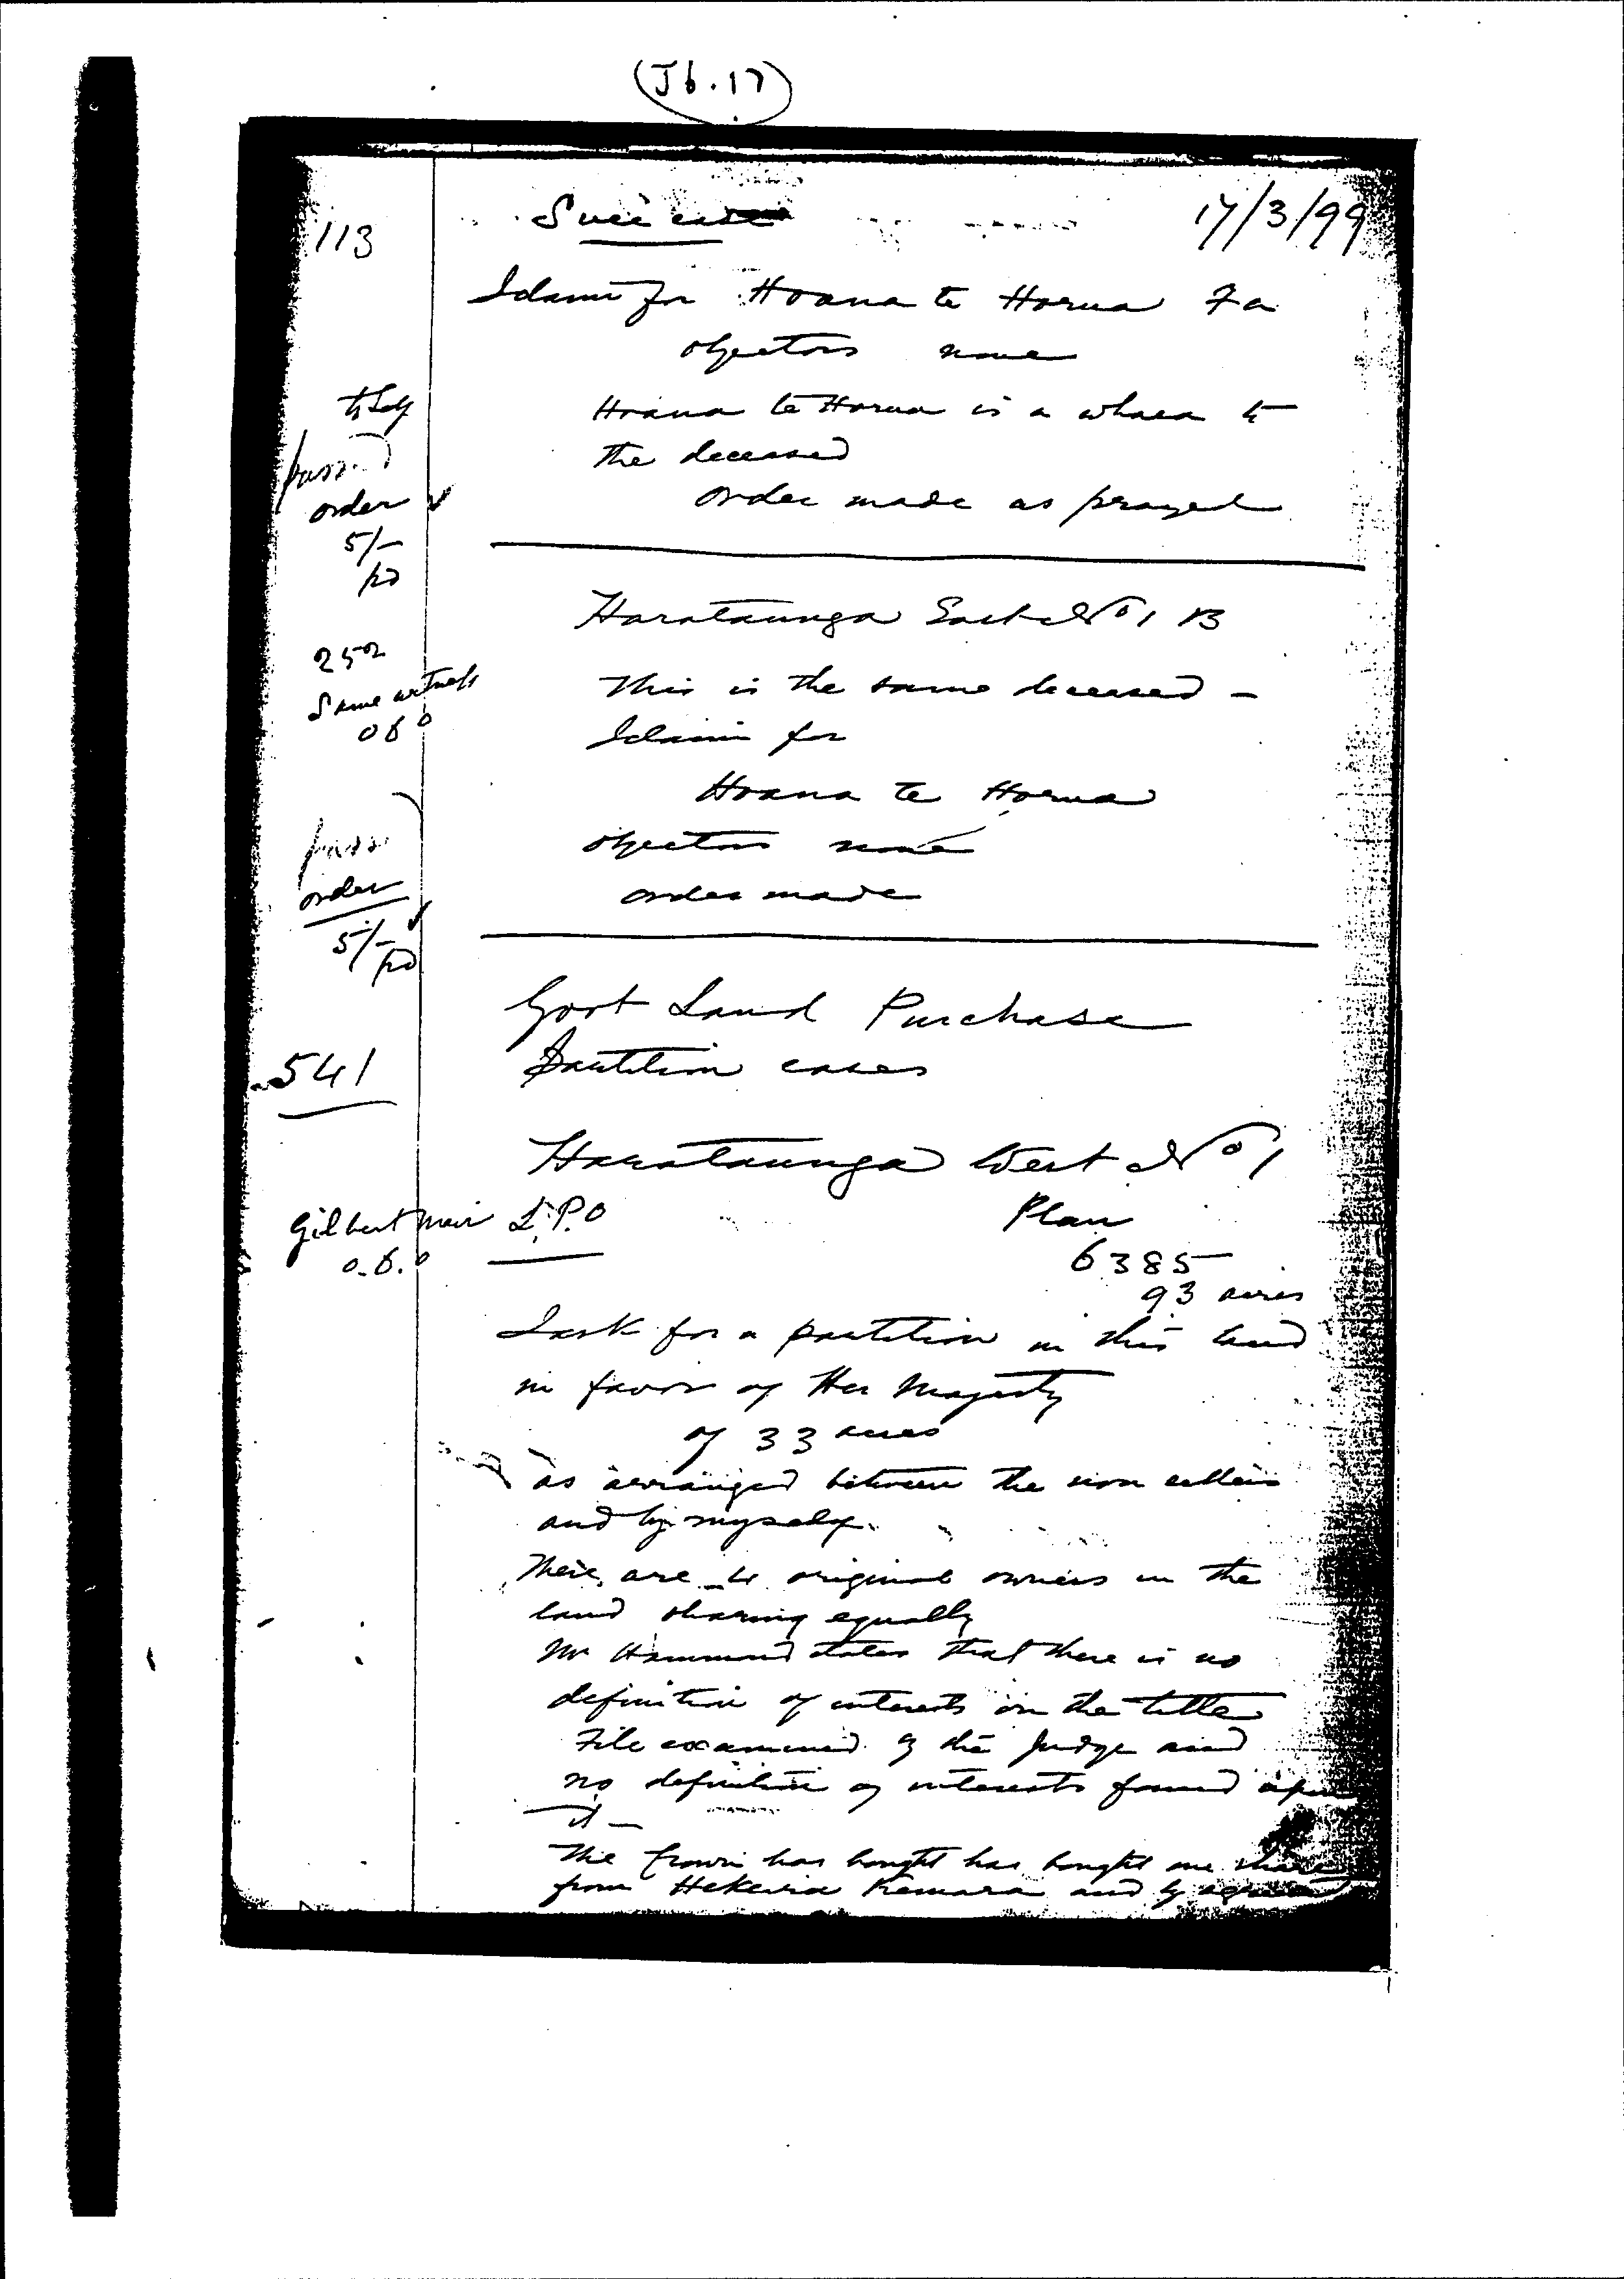 (J6.17)
113
Succ case
17/3/99
I claim for Hoana te Horua Fa
objectors none
Hoana te Horua is a whaea to
the deceased
order made as prayed
passed
order
5/-
pd
Harataunga East No 1 B
252
Same witness
o b o
This is the same deceased -
I claim for
Hoana te Horua
objectors none
order made
pass
order
5/-
pd
Govt Land Purchase
Partition cases
541
Harataunga West No 1
Gilbert Mair L.P.O
o.b.o
Plan
6385
93 acres
I ask for a partition in this land
in favor of Her Majesty
of 33 acres
as arranged between the non sellers
and by myself.
There are 4 original owners in the
land sharing equally
Mr Hammond states that there is no
definition of interests in the title
File examined by the Judge and
no definition of interests found upon
it -
The Crown has bought has bought one share
from Hekeira Kemara and by